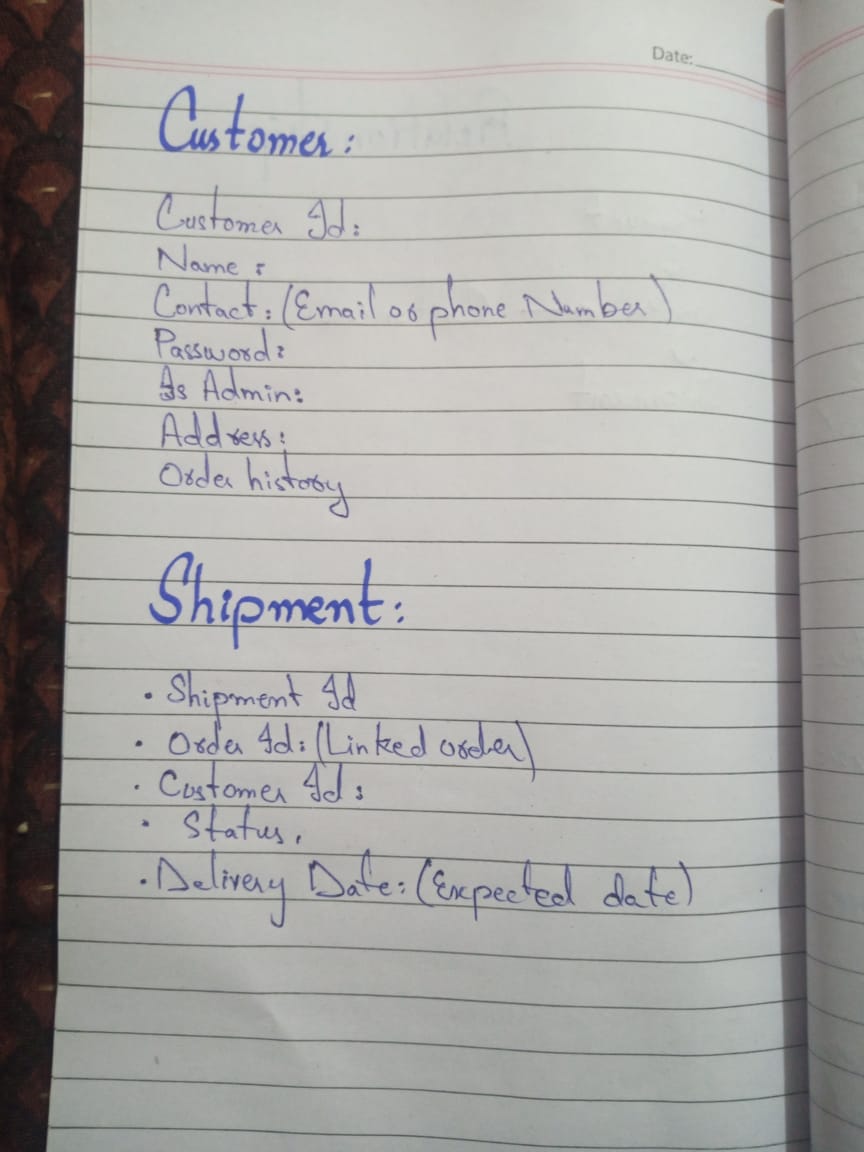 Date:
Customer:
Customer Id:
Name:
Contact: (Email or phone Number)
Password:
Is Admin:
Address:
Order history
Shipment:
• Shipment Id
• Order Id: (Linked order)
• Customer Id:
• Status.
• Delivery Date: (Expected date)